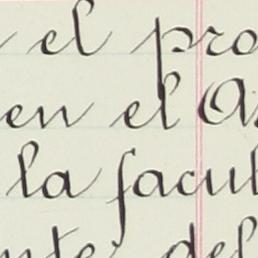 el pro
en el A
la facul
ntes del